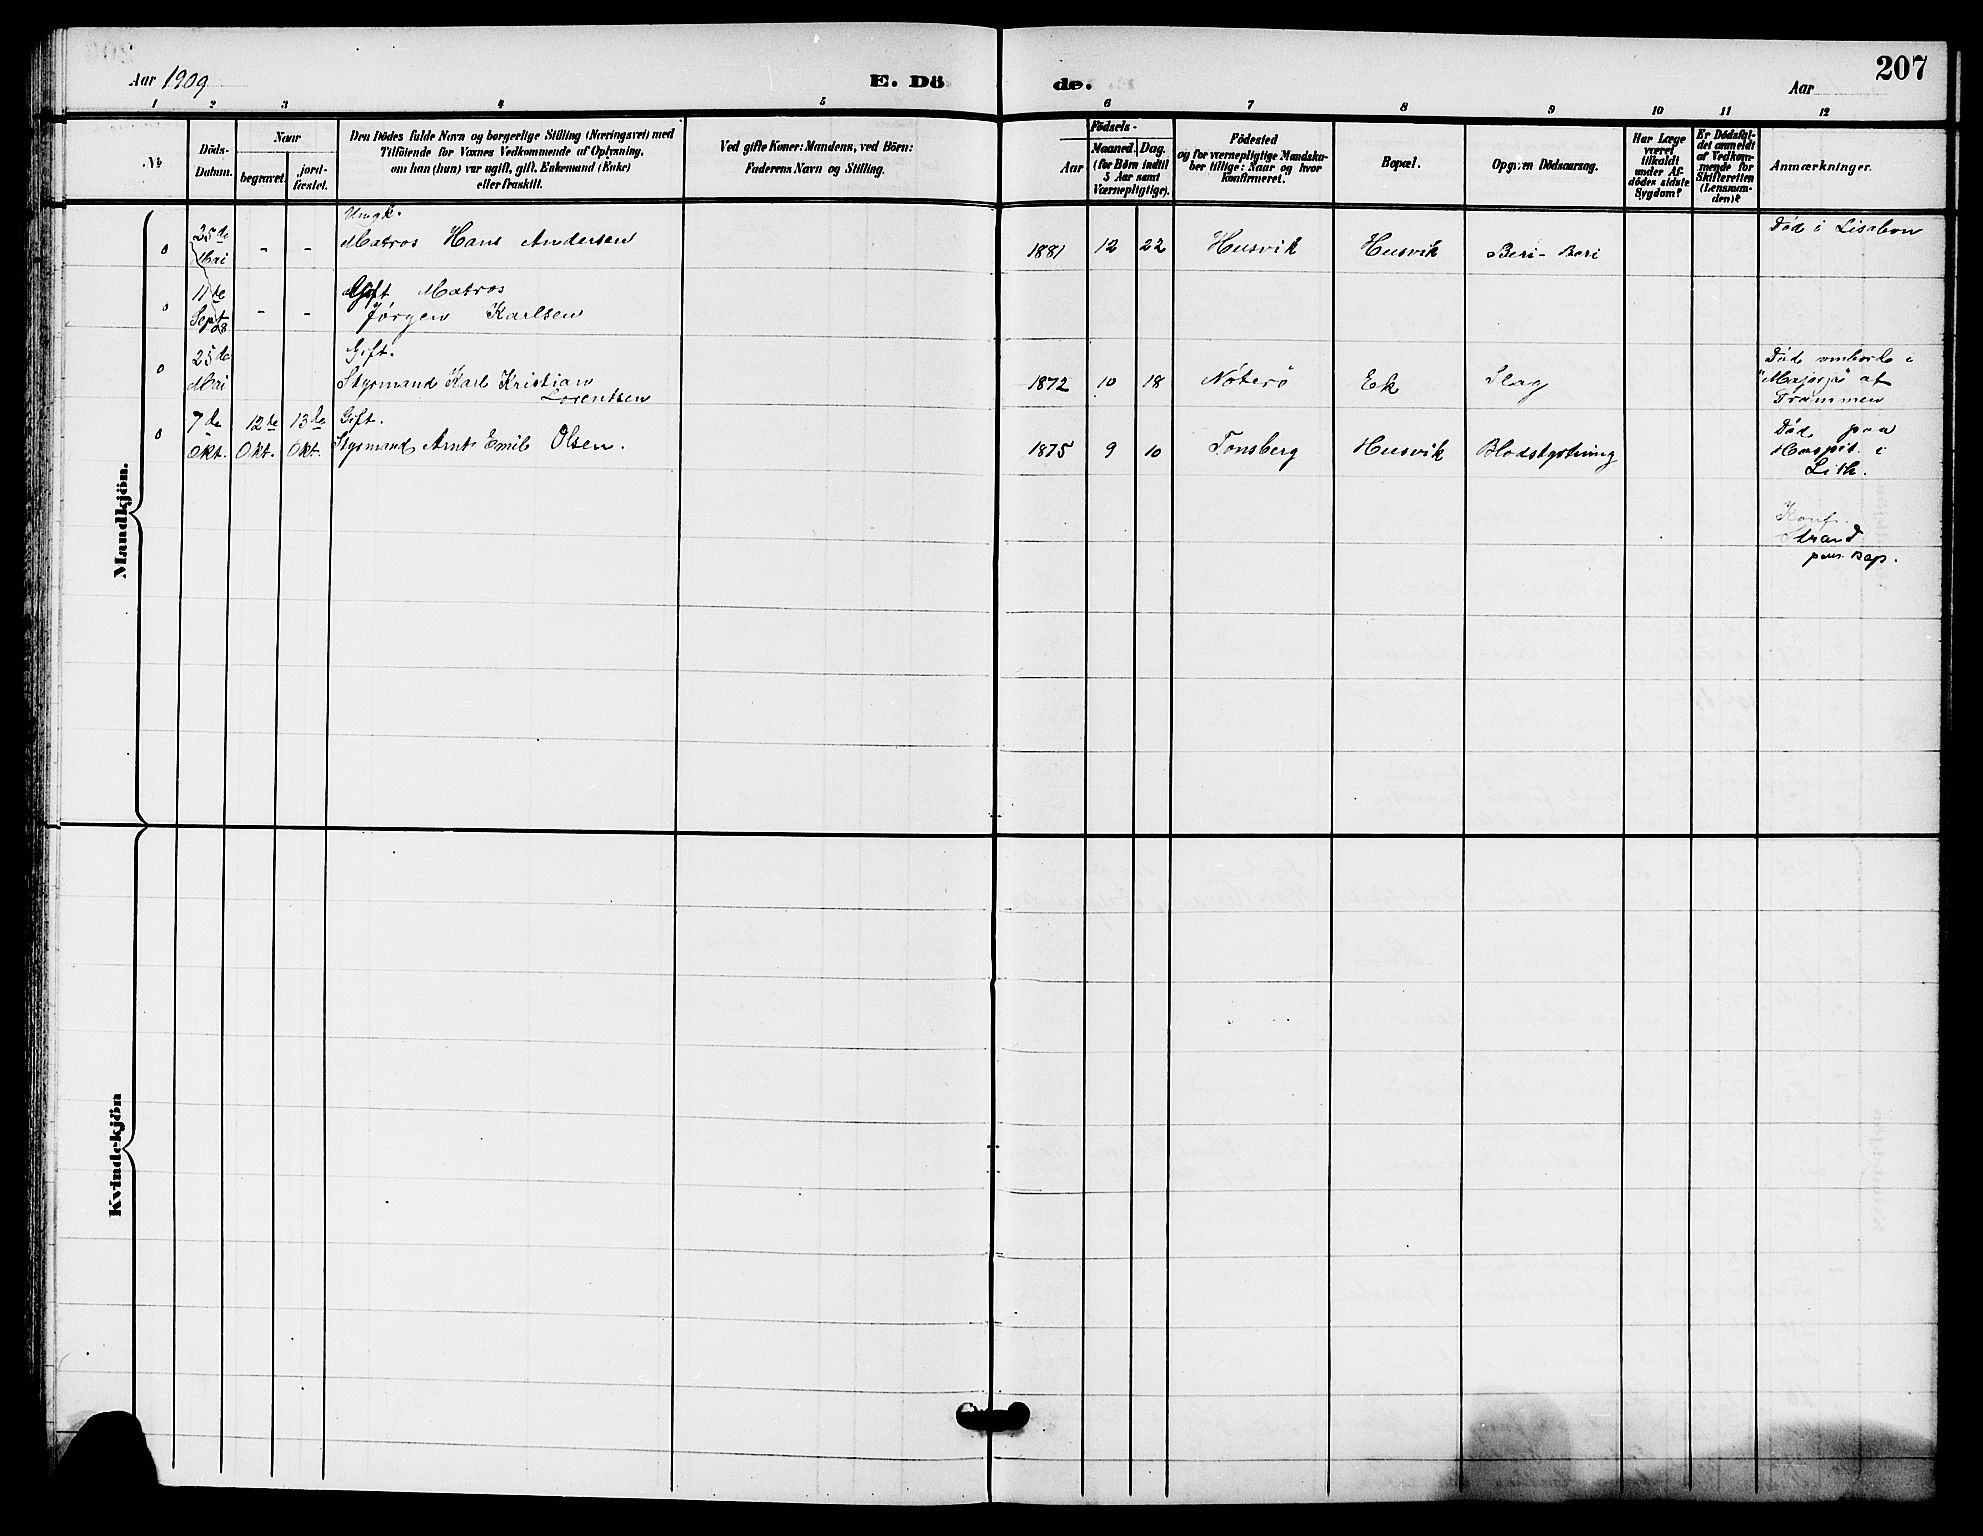 207
Aar 1909
E. Dö
de.
Aar
1 2 3 4 5 6 7 8 9 10 11 12
№
Döds-
Datum.
Naar
begravet.
jord-
fæstet.
Den Dödes fulde Navn og borgerlige Stilling (Næringsvei) med
Tilföiende for Voxnes Vedkommende af Oplysning,
om han (hun) var ugift, gift, Enkemand (Enke)
eller fraskilt.
Ved gifte Koner: Mandens, ved Börn:
Faderens Navn og Stilling.
Födsels-
Aar
Maaned.
Dag.
(for Börn indtil
5 Aar samt
Værnepligtige).
Födested
og for værnepligtige Mandska-
ber tillige: Naar og hvor
konfirmeret.
Bopæl.
Opgiven Dödsaarsag.
Har Læge
været
tilkaldt
under Af-
dödes sidste
Sygdom?
Er Dödsfal-
det anmeldt
af Vedkom-
mende for
Skifteretten
(Lensman-
den)?
Anmærkninger.
Mandkjön.
0
25de
Mai
- -
Ungk.
Matros Hans Andersen
1881 12 22 Husvik Husvik Beri-Beri
Död i Lisabon
0
11te
Sept
08
- -
Gift Matros
Jörgen Karlsen
0
25de
Mai
Gift.
Styrmand Karl Kristian
Lorentsen
1872 10 18 Nøterø Ek Slag
Död ombord i
at
0
7de
Okt.
12te
Okt.
13de
Okt.
Gift.
Styrmand Arnt Emil Olsen.
1875 9 10 Tønsberg Husvik Blodstyrtning
Död paa
Hospit. i
Lith.
Konf.
Strand
Kvindekjön